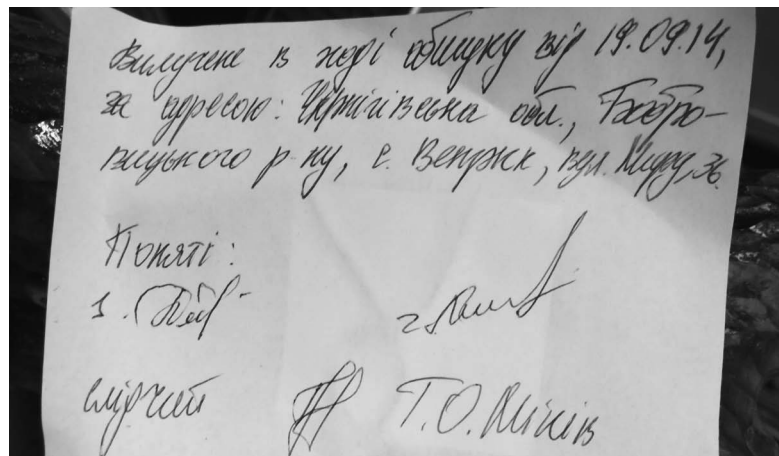 Вилучене в ході обшуку від 19.09.14,
за адресою: Чернігівська обл., Бобро-
вицького р-ну, с. Веприк, вул. Миру, 36.
Поняті:
1.
2.
слідчий Т.О.